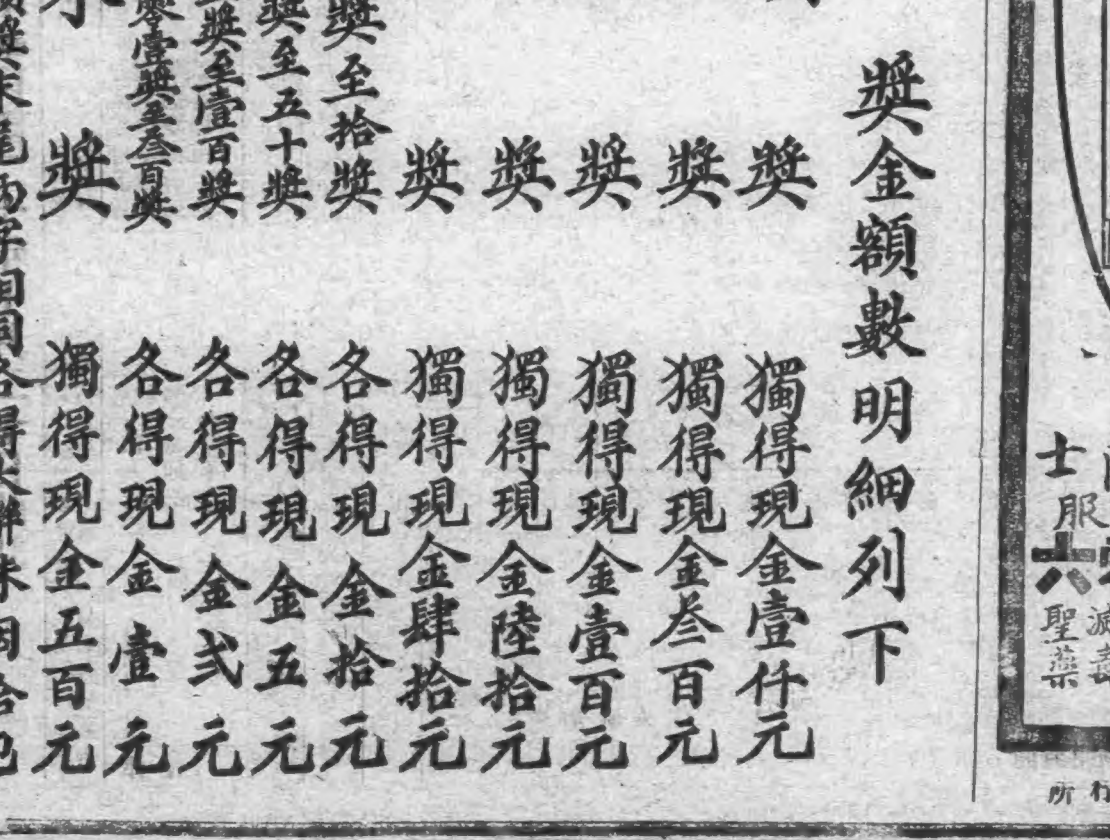 士服
六
聖藥
所
獎金額數明細列下
獎 獨得現金壹仟元
獎 獨得現金叁百元
獎 獨得現金壹百元
獎 獨得現金陸拾元
獎 獨得現金肆拾元
獎至拾獎 各得現金拾元
獎至五十獎 各得現金五元
獎至壹百獎 各得現金弍元
零壹獎至叁百獎 各得現金壹元
獎 獨得現金五百元
獎末尾兩字相同各得